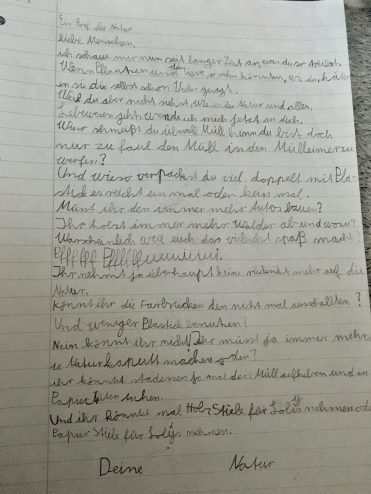 Ein Brief der Natur
liebe Menschen,
ich schaue mir nun seit langer Zeit an, was du so treibst.
Wenn Pflanzen und die Tiere reden könnten, wie du, hätt
en sie dir selbst schon Vieles gesagt.
Weil du aber nicht siehst, wie es der Natur und allen
Lebewesen geht, wende ich mich jetzt an dich.
Wieso schmeißt du überall Müll hin du bist doch
nur zu faul den Müll in den Mülleimer zu
werfen?
Und wieso verpackst du viel doppelt mit Pla-
stik es reicht einmal oder kein mal.
Müsst ihr den immer mehr Autos bauen?
Ihr holzt immer mehr Wälder ab und wozu?
Warscheinlich weil euch das vieleicht spaß macht
Pfff Pfff
Ihr nehmt ja überhaupt keine rücksicht mehr auf die
Natur,
könnt ihr die den nicht mal ausschalten?
Und weniger Plastick benutzen!
Nein könnt ihr nicht! Ihr müsst ja immer mehr
Natur kaputt machen oder?
ihr könntet stadessen ja mal den Müll aufheben und in
Papiertüten
Und ihr könntet mal Holz Stiele für Lolis nehmen ode
Papier Stiele für Lolys nehmen.
Deine Natur